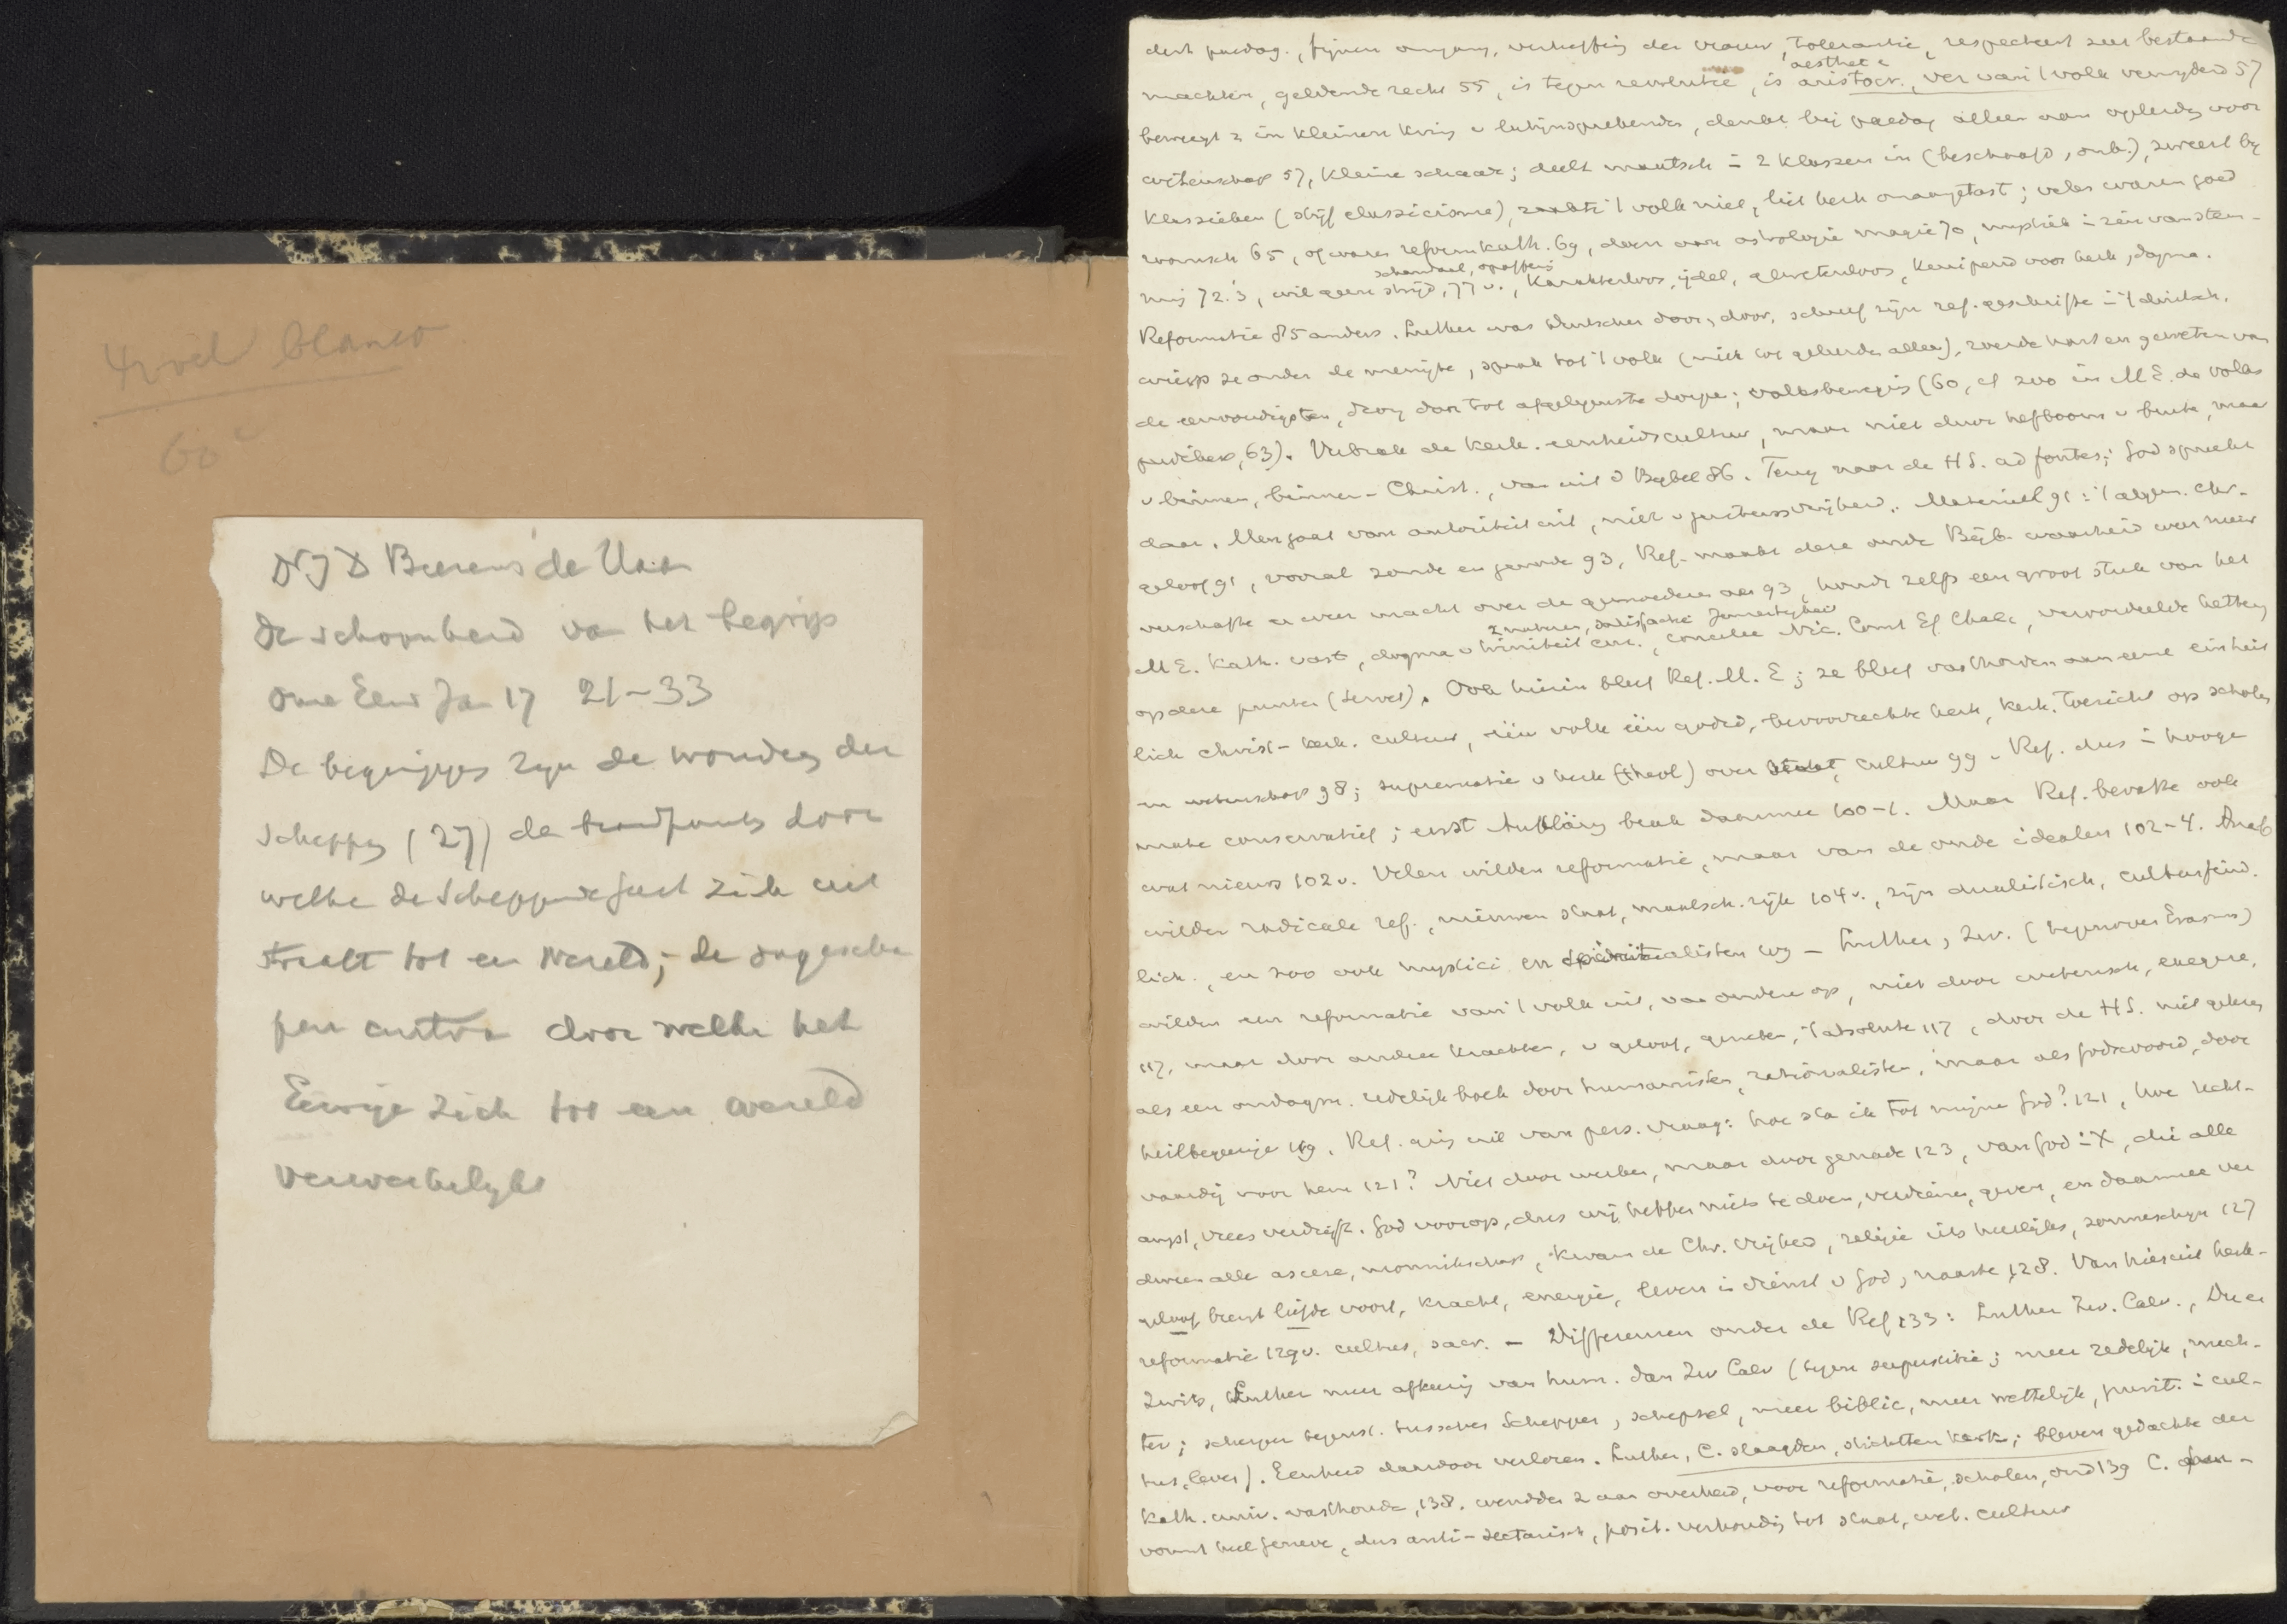 blanco
60
Dr J D Bierens de Haan
De schoonheid van het begrip
Onze Eeuw Jan 17 21-33
De begrippen zyn de wonden der
Schepping (27) de brandpunten door
welke de Scheppende Geest zich uit
straalt tot een Wereld; de
centra door welke het
Eeuwige zich tot een wereld
verwerkelykt
paedag., fijnen omgang, verheffing der vrouw, tolerantie, respecteert zeer bestaande
aesthet
machten, geldende recht 55, is tegen revolutie, is aristocr., ver van 't volk verwyderd 57
beweegt z in kleinen kring v latijnsprekenden, denkt bij paedag alleen aan opleiding voor
wetenschap 57, kleine schaar; deelt maatsch = 2 klassen in (beschaafd, onb.), zweert by
klassieken (stijf classicisme), 't volk niet, liet kerk onaangetast; velen waren goed
roomsch 65, of waren reformkath. 69, doen aan astrologie magie 70,
schandaal, opoffering
72.3, wil geen strijd, 77 v., karakterloos, ijdel, gewetenloos, kruipend voor kerk, dogma.
Reformatie 85 anders. Luther was duitscher door en door, schreef zijn ref. geschriften in 't duitsch,
wierp ze onder de menigte, sprak tot 't volk (niet tot geleerden alleen), roerde hart en geweten van
de eenvoudigsten, drong door tot afgelegenste dorpen; volksbeweging (60, cf zoo in M.E. de volks
predikers, 63). Verbrak de kerk. eenheidscultuur, maar niet door hefboom v buiten, maar
v binnen, binnen-Christ., van uit d Bijbel 86. Terug naar de H.S. ad fontes; God spreekt
daar. Men gaat van autoriteit uit, niet v gewetensvrijheid. Materieel 91: 't algem. chr.
geloof 91, vooral zonde en genade 93, Ref. maakt deze oude Bijb. waarheid weer nieuw
verschafte er weer macht over de gemoederen aan 93, houdt zelfs een groot stuk van het
2 naturen, satisfactie
M.E. Kath. vast, dogma v triniteit enz., concilies Nic. Const Ef Chalc, veroordeelde ketterij
op deze punten (Servet). Ook hierin bleef Ref. M.E; ze bleef vasthouden aan eene einheit
lich christ-kerk. cultuur, één volk één godsd, bevoorrechte kerk, kerk. toezicht op scholen
en wetenschap 98; suprematie v kerk (theol) over staat, cultuur 99 v Ref. dus in hooge
mate conservatief; eerst Aufklärung brak daarmee 100-1. Maar Ref. bevatte ook
wat nieuws 102 v. Velen wilden reformatie, maar van de oude idealen 102-4. Anab
wilden radicale ref., nieuwen staat, maatsch. rijk 104 v., zijn dualistisch, cultuurfeind
lich., en zoo ook mystici en spiritualisten 109 - Luther, Zw. (tegenover Erasmus)
wilden een reformatie van 't volk uit, van onderen op, niet door wetensch, exegese,
117, maar door andere krachten, v geloof, geweten, 't absolute 117, door de H.S. niet gelezen
als een redelijk boek door humanisten, rationalisten, maar als Godswoord, door
heilbegeerige 119. Ref. ging uit van pers. vraag: hoe sta ik tot mijn God? 121, hoe recht-
vaardig voor hem 121? Niet door werken, maar door genade 123, van God in X, die alle
angst, vrees verdrijft. God voorop, dus wij hebben niets te doen, verdienen, geven, en daarmee ver
dween alle ascese, monnikschap, kwam de Chr. vrijheid, religie iets heerlijks, zonneschijn 127
geloof brengt liefde voort, kracht, energie, leven in dienst v God, naaste 128. Van hieruit kerk-
reformatie 129 v. cultus, sacr. - Differenzen onder de Ref 133: Luther Zw. Calv., Duits
Zwits, Luther meer afkeerig van hum. dan Zw Calv (tegen superstitie; meer zedelijk, nuch-
ter; scherper tegenst. tusschen Schepper, schepsel, meer biblic, meer wettelijk, purit. in cul-
tus, leven). Eenheid daardoor verloren. Luther, C. slaagden, stichtten kerk; bleven gedachte der
kath. univ. vasthouden, 138. wendden z aan overheid, voor reformatie, scholen, ond 139 C.
vormt heel Geneve, dus anti-sectarisch, posit. verhouding tot staat, wet. cultuur